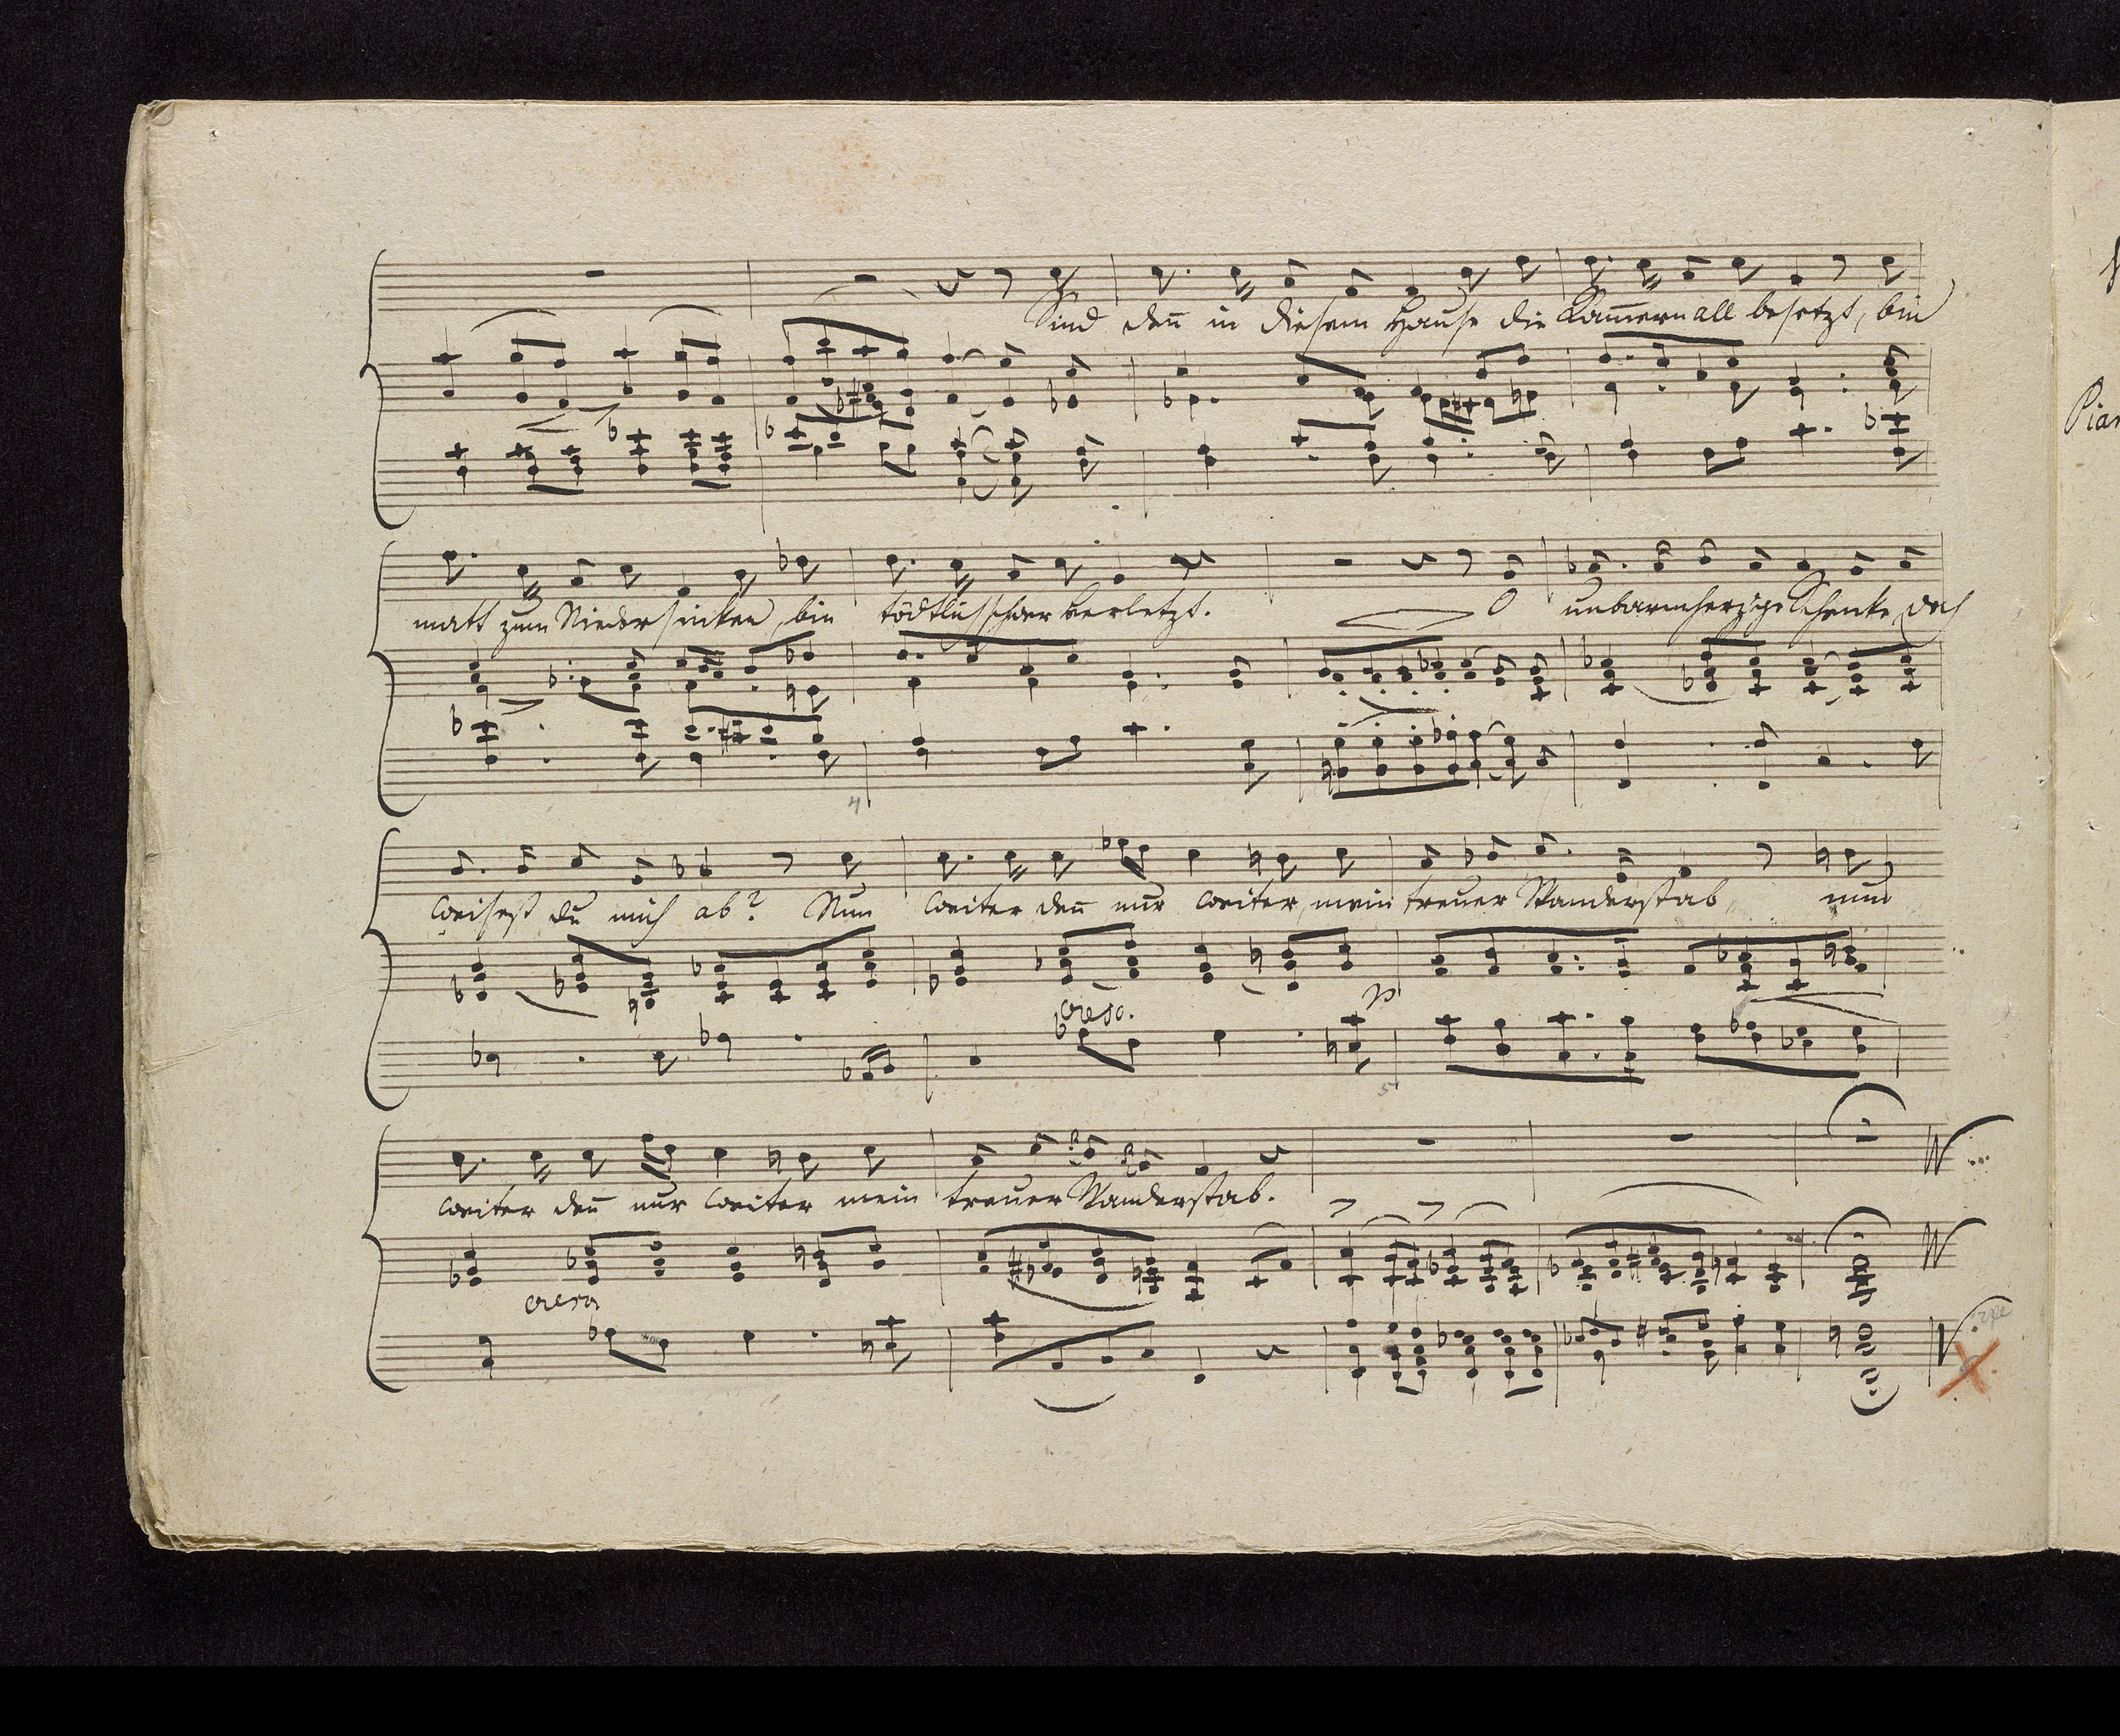 Sind den̄ in diesem Hause die Kam̄ern all besetzt, bin
matt zum Niedersinken, bin tödtlich schwer verletzt. O unbarmherzge Schenke, doch
4
weisest du mich ab? Nun weiter den̄ nur weiter, mein treuer Wanderstab, nun
cresc. p
5
weiter den̄ nur weiter mein treuer Wanderstab.
cresc
Pian